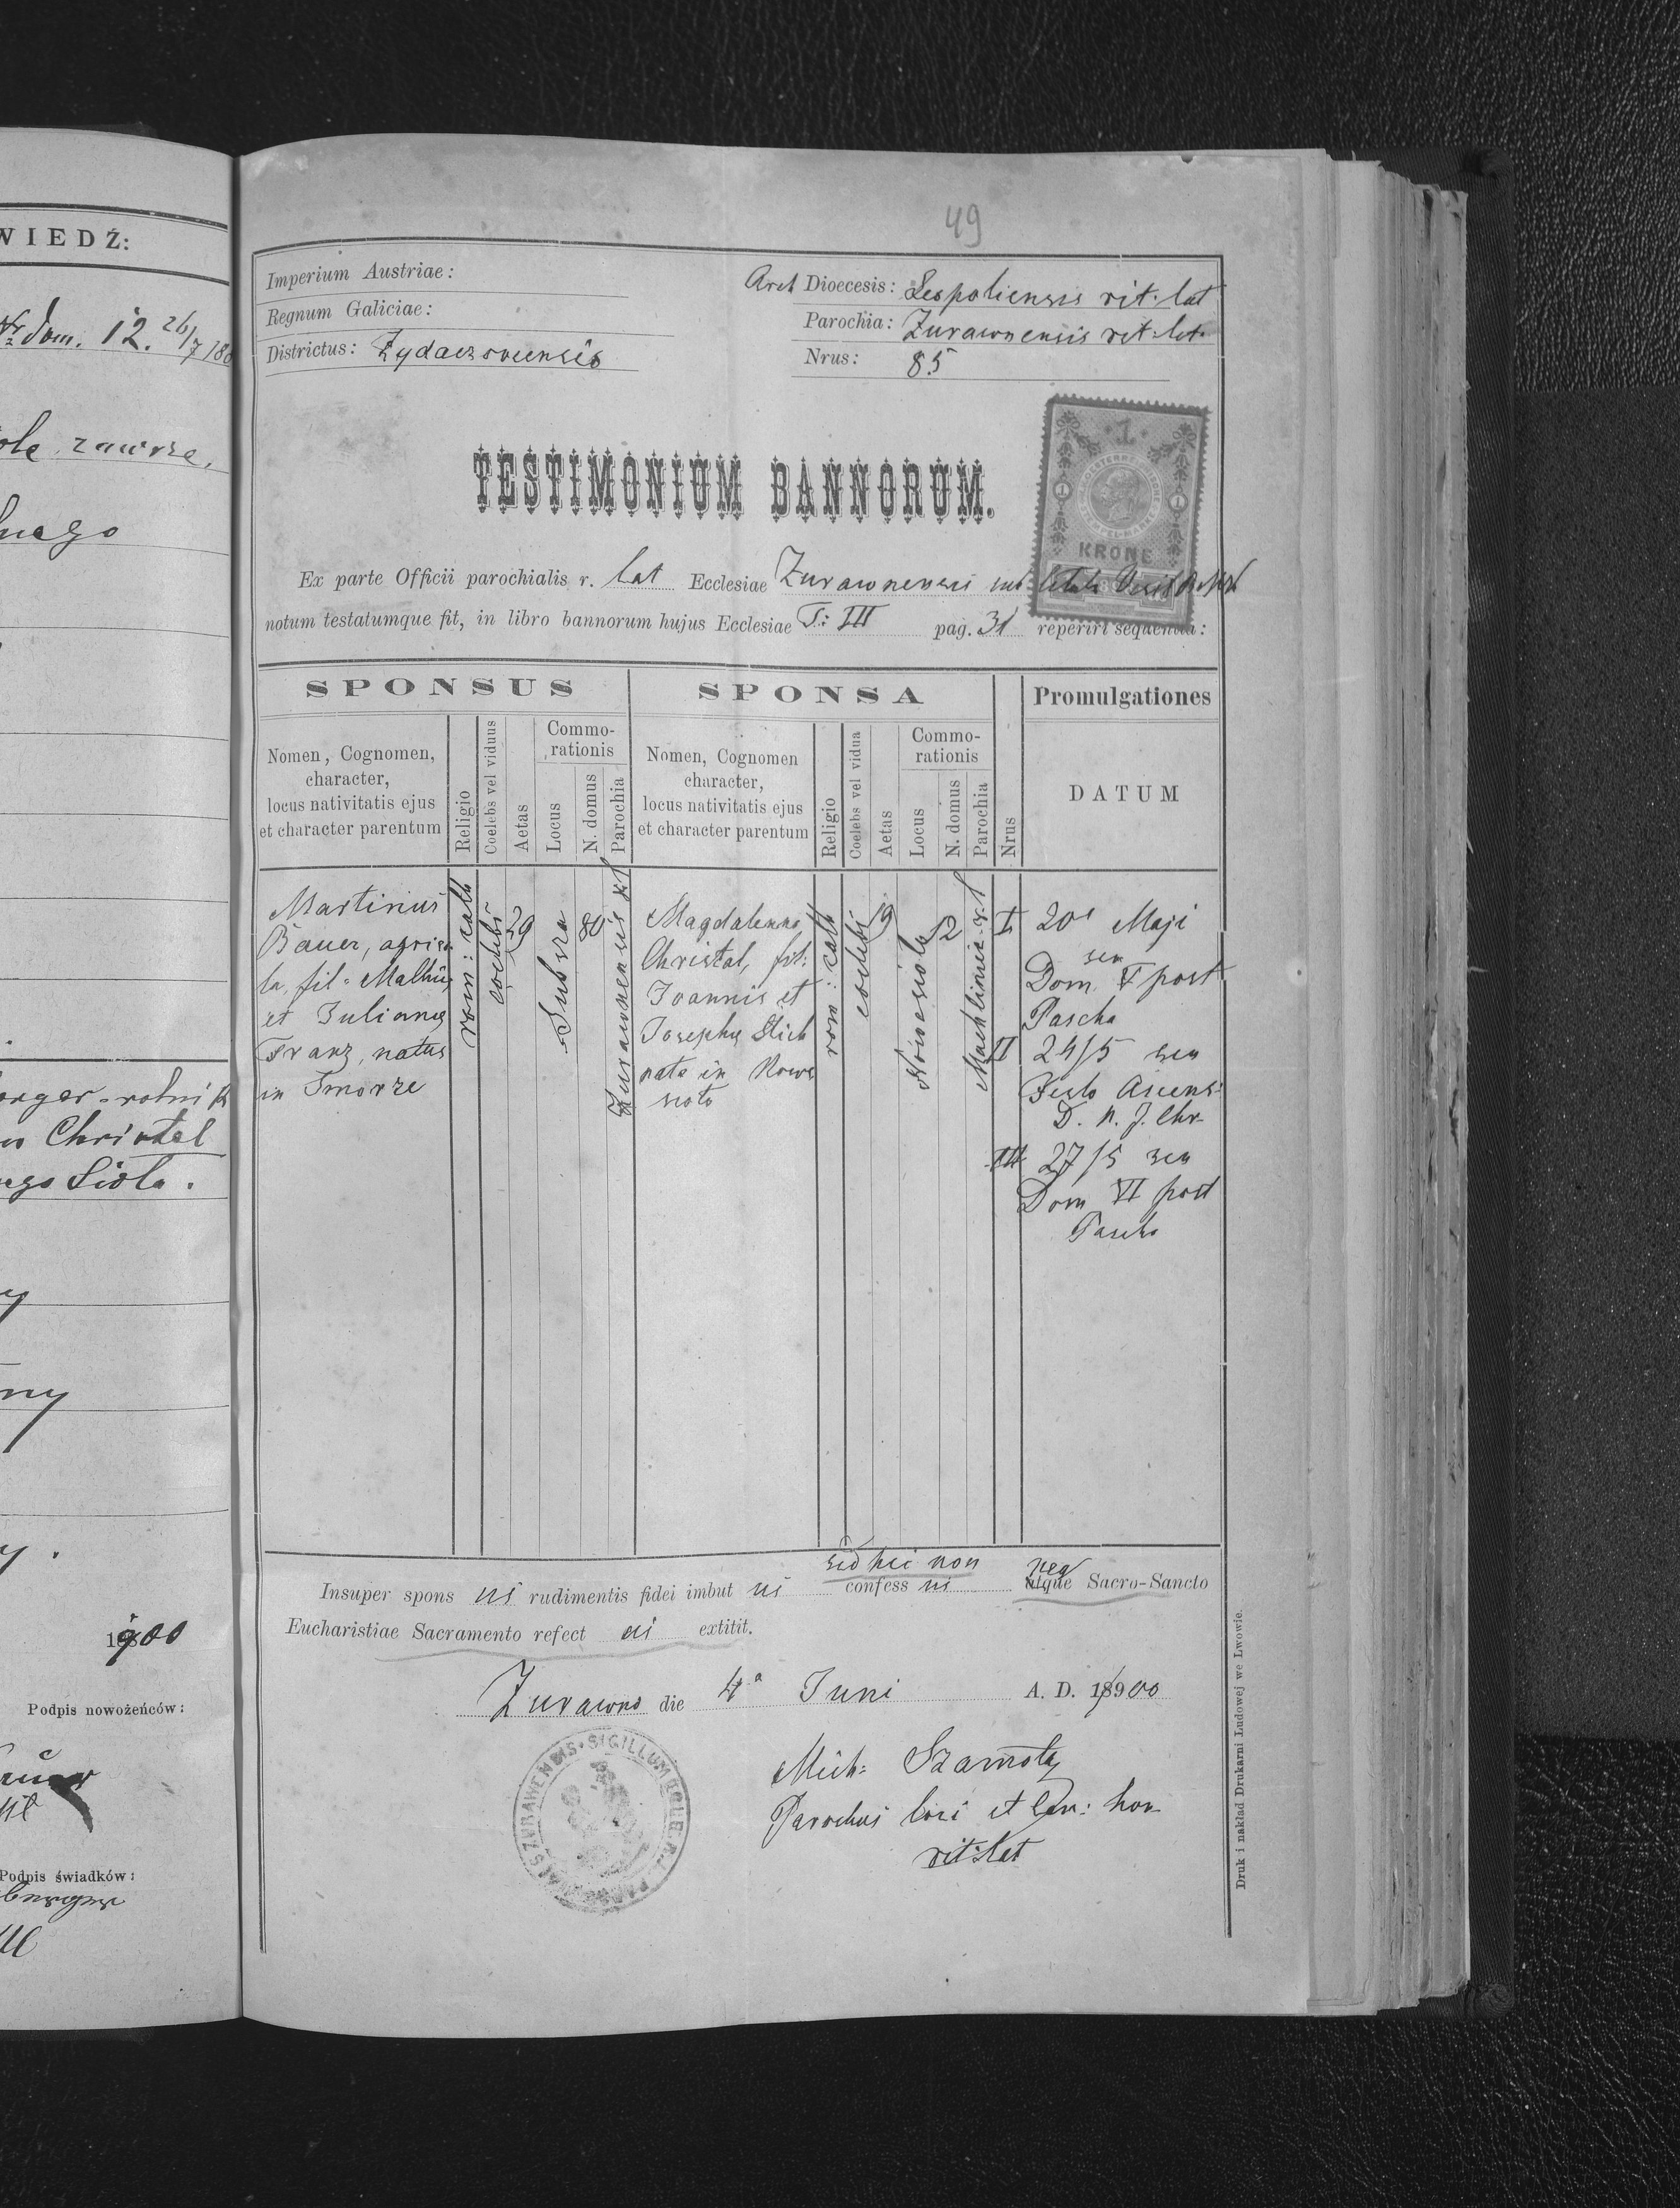 WIEDŹ:
dom. 12. 26/7 18
zawsze.
nego
rolnik
Christel
Sioła.
ny
1900
Podpis nowożeńców:
Podpis świadków:
49
Imperium Austriae:
Regnum Galiciae:
Districtus: Żydaczoviensis
Arch Dioecesis: Leopoliensis rit: lat
Parochia: Żurawnensis rit: lat.
Nrus: 85
TESTIMONIUM BANNORUM.
1
KRONE
Ex parte Officii parochialis r. lat Ecclesiae Żurawnensi sub
notum testatumque fit, in libro bannorum hujus Ecclesiae T: III pag. 31 reperiri sequentia:
SPONSUS
SPONSA
Promulgationes
Nomen, Cognomen, character, locus nativitatis ejus et character parentum
Religio
Coelebs vel viduus
Aetas
Commorationis
Locus
N. domus
Parochia
Nomen, Cognomen character, locus nativitatis ejus et character parentum
Religio
Coelebs vel vidua
Aetas
Commorationis
Locus
N. domus
Parochia
Nrus
DATUM
Martinus
Bauer, agrico
la, fil: Mathiæ
et Julianæ
Franz, natus
in Smorze
rom: cath
coelebs
29
80
Żurawnensis r.l
Magdalenna
Christal, fil:
Joannis et
Josephæ Stich
nata in Nowe
sioło
rom: cath
coelebs
19
Nowesioło
12
I 20a Maji
seu
Dom V post
Pascha
II 24/5 seu
Festo Ascens:
D. N. J. Chr.
III 27/5 seu
Dom VI post
Pascha
sed hic non
neq
Insuper spons us rudimentis fidei imbut us confess us atque Sacro-Sancto
Eucharistiae Sacramento refect us extitit.
Żurawno die 4a Juni A. D. 18900
SIGILLUM
Mich: Szamota
Parochus loci et Can: hon
rit: lat
Druk i nakład Drukarni Ludowej we Lwowie.